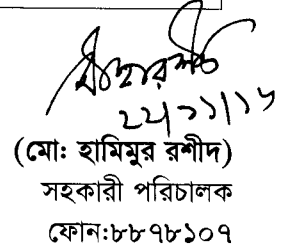 ২২/১১/১৬
(মোঃ হামিমুর রশীদ)
সহকারী পরিচালক
ফোন:৮৮৭৮১০৭